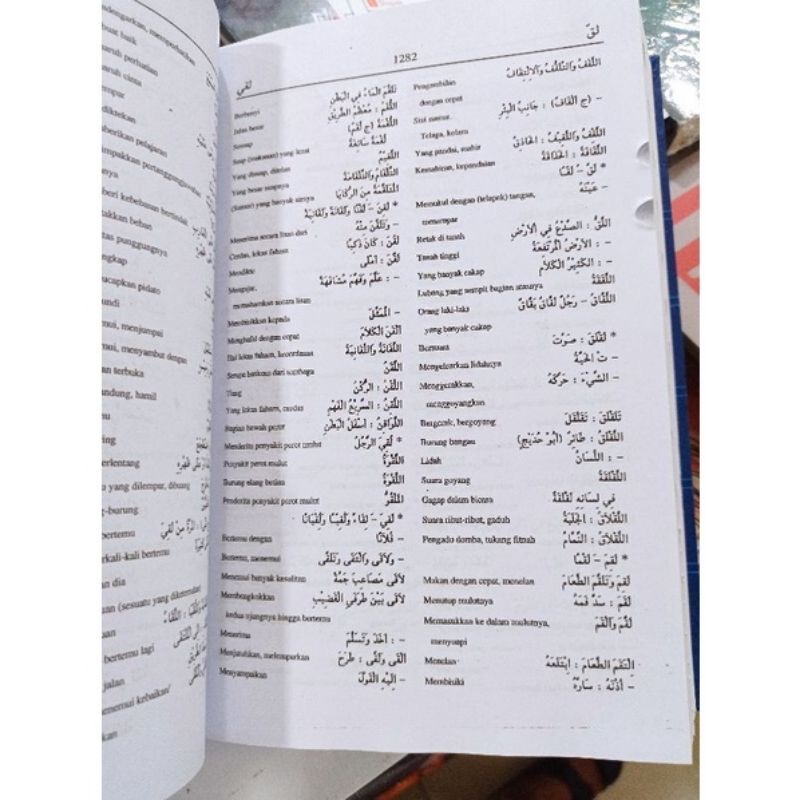 لقّ
1282
لقي
اللَّقْفُ وَالتَّلَقُّفُ وَالاِلْتِقَافُ Pengambilan
dengan cepat
– (ج الْقَاف) : جَانِبُ الْبِئْرِ Sisi sumur,
Telaga, kolam
اللَّقْفُ وَاللَّقِيفُ : الْحَاذِقُ Yang pandai, mahir
اللَّقَافَةُ : الْحَذَاقَةُ Kemahiran, kepandaian
* لَقَّ – لَقًّا
– عَيْنَهُ Memukul dengan (telapak) tangan,
menampar
اللَّقُّ : الصَّدْعُ فِي الْأَرْضِ Retak di tanah
– : الْأَرْضُ الْمُرْتَفِعَةُ Tanah tinggi
– : الْكَثِيْرُ الْكَلَامِ Yang banyak cakap
اللَّقَقَةُ Lubang yang sempit bagian atasnya
اللَّقَّاقُ – رَجُلٌ لَقَّاقٌ بَقَّاقٌ Orang laki-laki
yang banyak cakap
* لَقْلَقَ : صَوَّتَ Bersuara
– تْ الْحَيَّةُ Mengeluarkan lidahnya
– الشَّيْءَ : حَرَّكَهُ Menggerakkan,
menggoyangkan
تَلَقْلَقَ : تَقَلْقَلَ Bergerak, bergoyang
اللَّقْلَقُ : طَائِرٌ (أَبُوْ حُدَيْجٍ) Burung bangau
– : اللِّسَانُ Lidah
اللَّقْلَقَةُ Suara goyang
فِي لِسَانِهِ لَقْلَقَةٌ Gagap dalam bicara
اللَّقْلَاقُ : الْجَلَبَةُ Suara ribut-ribut, gaduh
اللَّقْلَاقُ : النَّمَّامُ Pengadu domba, tukang fitnah
* لَقِمَ – لَقْمًا
لَقِمَ وَتَلَقَّمَ الطَّعَامَ Makan dengan cepat, menelan
لَقَمَ : سَدَّ فَمَهُ Menutup mulutnya
لَقَّمَ وَأَلْقَمَ Memasukkan ke dalam mulutnya,
menyuapi
اِلْتَقَمَ الطَّعَامَ : اِبْتَلَعَهُ Menelan
– أُذُنَهُ : سَارَّهُ Membisiki
تَلَقَّمَ الْمَاءُ فِي الْبَطْنِ Berbunyi
اللَّقَمُ : مُعْظَمُ الطَّرِيْقِ Jalan besar
اللُّقْمَةُ (ج لُقَمٌ) Sesuap
لُقْمَةٌ سَائِغَةٌ Suap (makanan) yang lezat
اللَّقِيْمُ Yang disuap, ditelan
التِّلْقَامُ وَالتِّلْقَامَةُ Yang besar suapnya
الْمُتَلَقِّمَةُ مِنَ الرَّكَايَا (Sumur) yang banyak airnya
* لَقِنَ – لَقْنًا وَلَقَانَةً وَلَقَانِيَةً
– وَتَلَقَّنَ مِنْهُ Menerima secara lisan dari
لَقِنَ : كَانَ ذَكِيًّا Cerdas, lekas faham
لَقَّنَ : أَمْلَى Mendikte
– : عَلَّمَ وَفَهَّمَ مُشَافَهَةً Mengajar,
memahamkan secara lisan
– الْمُمَثِّلَ Membisikkan kepada
أَلْقَنَ الْكَلَامَ Menghafal dengan cepat
اللَّقَانَةُ وَاللَّقَانِيَةُ Hal lekas faham, kecerdasan
اللَّقْنُ Serupa baskom dari tembaga
اللِّقْنُ : الرُّكْنُ Tiang
اللَّقِنُ : السَّرِيْعُ الْفَهْمِ Yang lekas faham, cerdas
اللَّوَاقِنُ : أَسْفَلُ الْبَطْنِ Bagian bawah perut
* لُقِيَ الرَّجُلُ Menderita penyakit perot mulut
اللَّقْوَةُ Penyakit perot mulut
اللِّقْوَةُ Burung elang betina
الْمَلْقُوُّ Penderita penyakit perot mulut
* لَقِيَ – لِقَاءً وَلُقْيًا وَلُقْيَانًا
– فُلَانًا Bertemu dengan
– وَلَاقَى وَالْتَقَى وَتَلَقَّى Bertemu, menemui
لَاقَى مَصَاعِبَ جَمَّةً Menemui banyak kesulitan
لَاقَى بَيْنَ طَرَفَيْ الْقَضِيْبِ Membengkokkan
kedua ujungnya hingga bertemu
– : أَخَذَ وَتَسَلَّمَ Menerima
أَلْقَى وَلَقَّى : طَرَحَ Menjatuhkan, melemparkan
– إِلَيْهِ الْقَوْلَ Menyampaikan
dengarkan, memperhatikan
buat baik
aruh perhatian
aruh cinta
mpar
diktekan
berikan pelajaran
mpakkan pertanggungjawaban
beri kebebasan bertindak
akkan beban
tas punggungnya
ngkap
ucapkan pidato
undi
mui, menjumpai
mui, menyambut dengan
terbuka
ndung, hamil
mpar
erlentang
u yang dilempar, dibuang
g-burung
bertemu
kali-kali bertemu
an dia
an (sesuatu yang diketemukan)
aan
bertemu lagi
jalan
menemui kebaikan/
kan